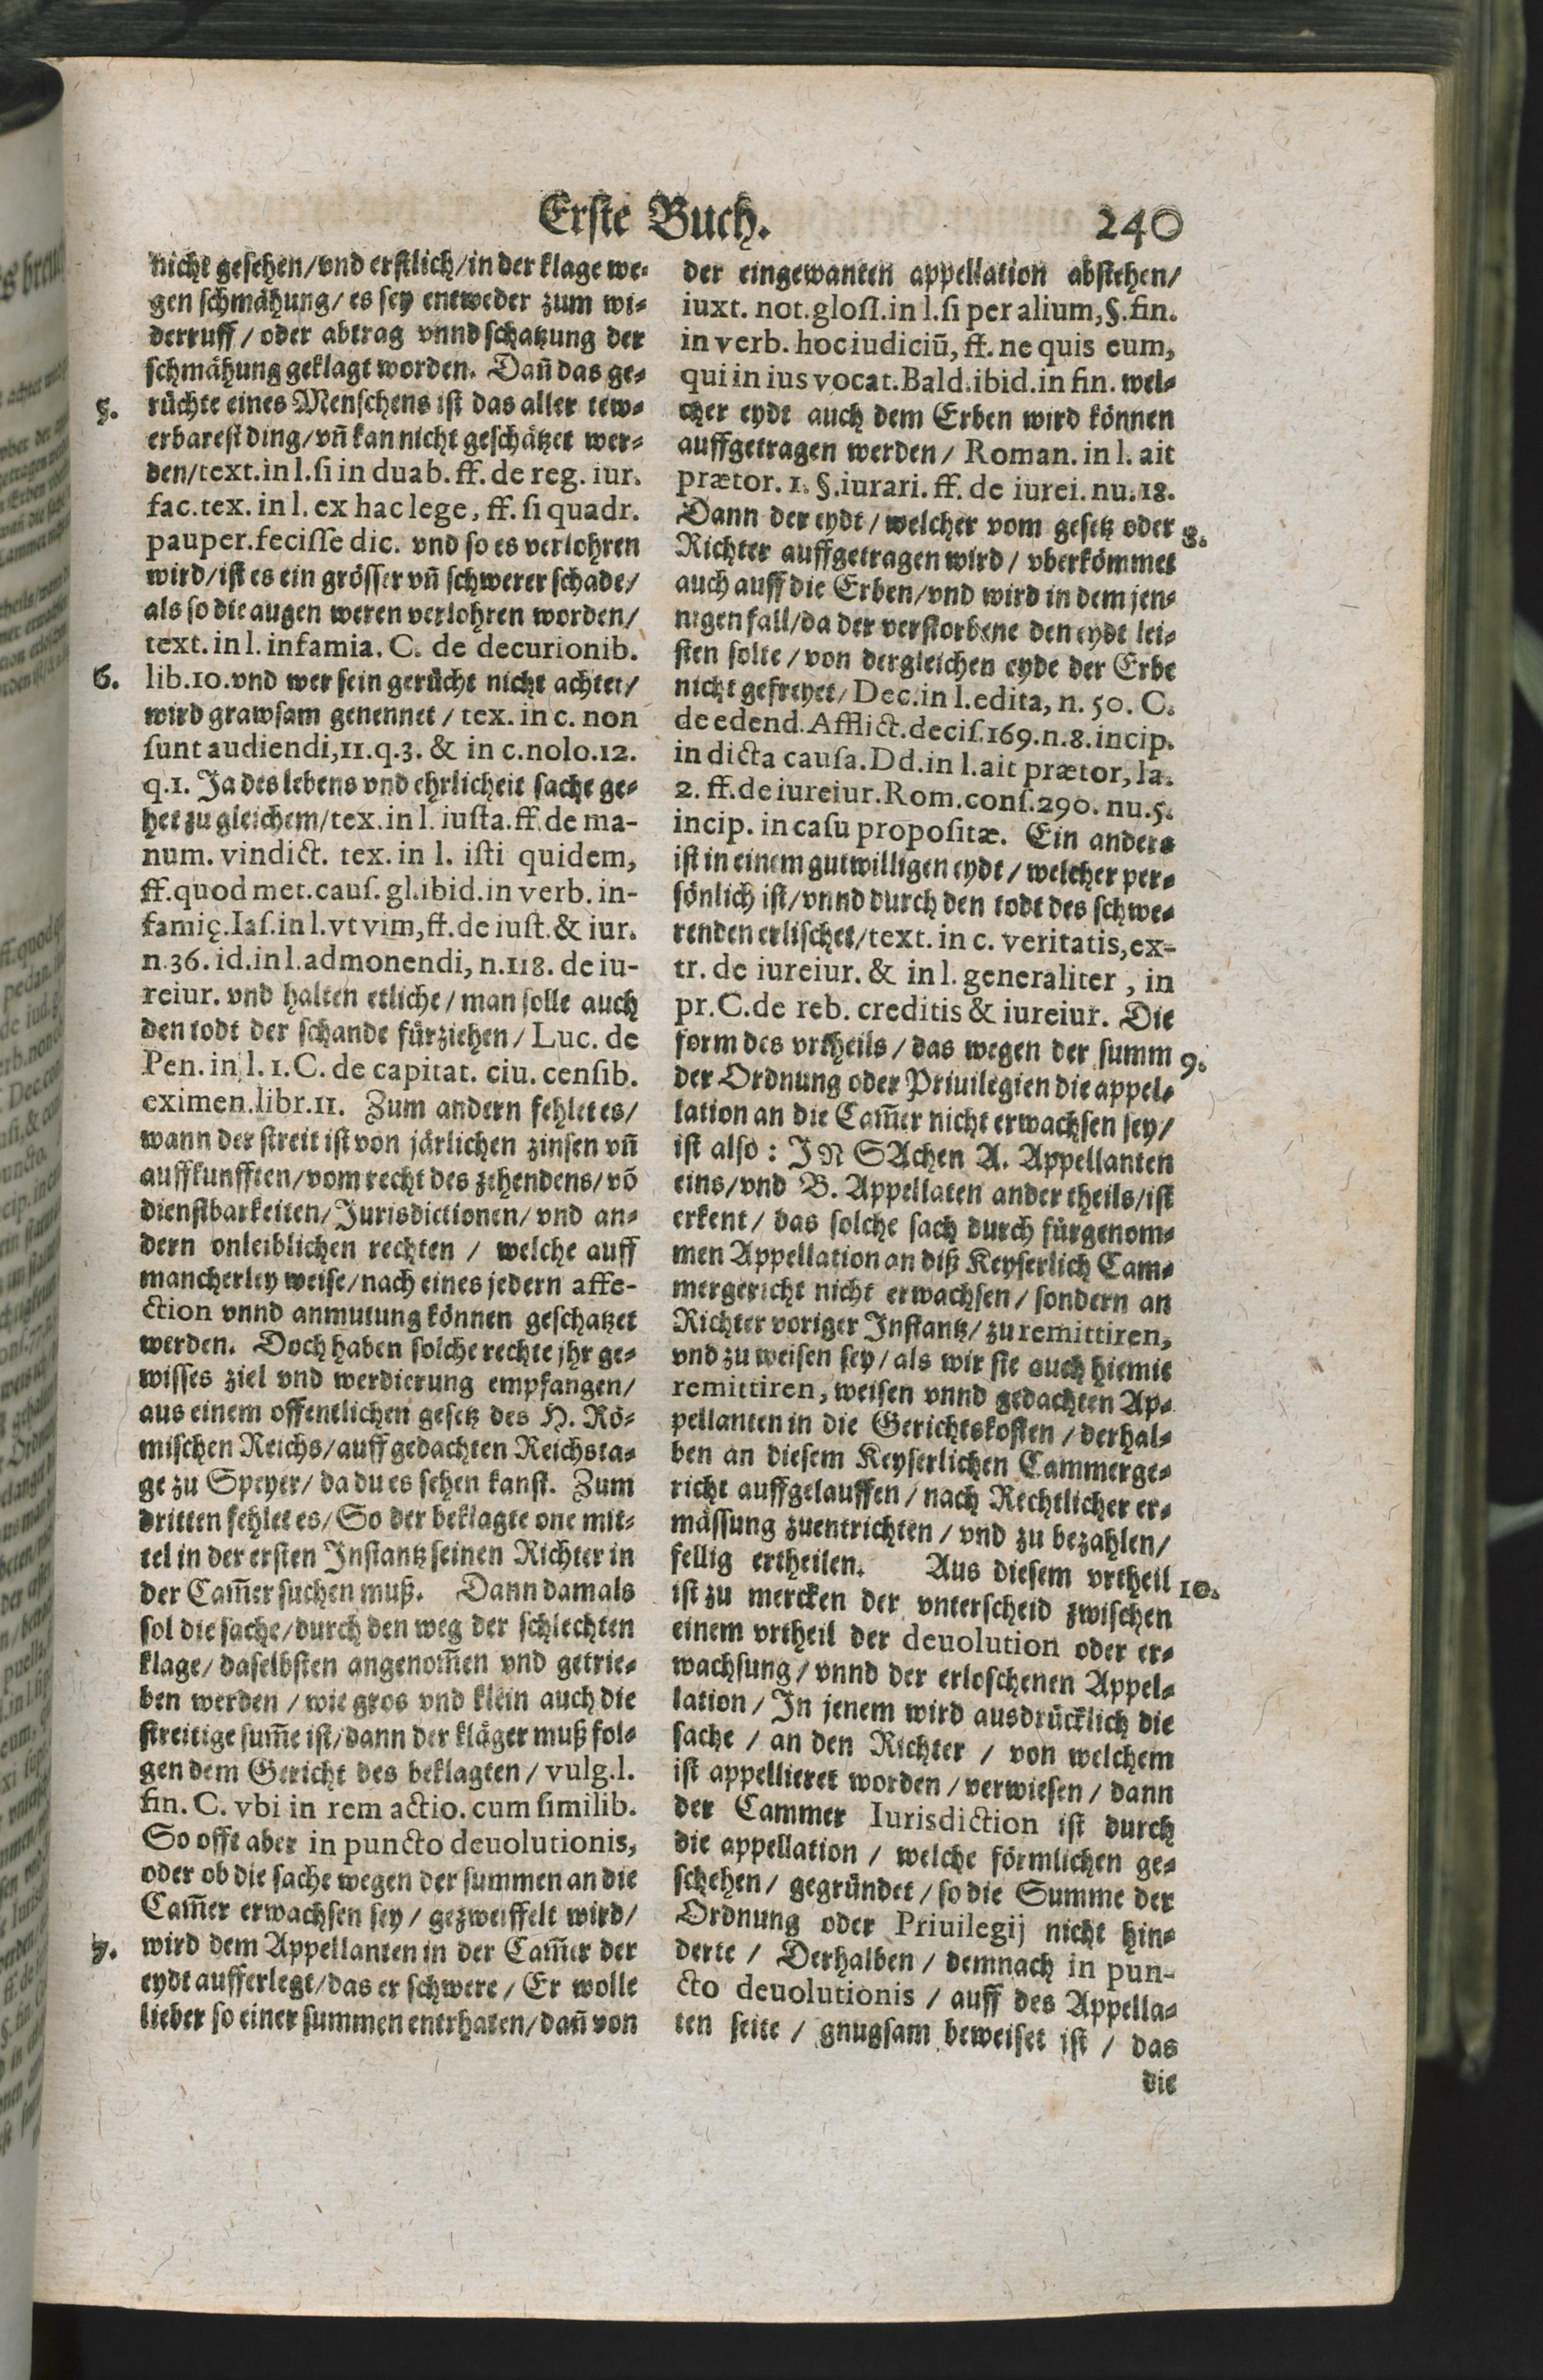 Erste Buch. 240
nicht gesehen/vnd erstlich/in der klage we-
gen schmähung/ es sey entweder zum wi-
derruff / oder abtrag vnnd schatzung der
schmähung geklagt worden. Dañ das ge-
5. rüchte eines Menschens ist das aller tew-
erbarest ding/vñ kan nicht geschätzet wer-
den/text. in l. si in duab. ff. de reg. iur.
fac. tex. in l. ex hac lege, ff. si quadr.
pauper. fecisse dic. vnd so es verlohren
wird/ist es ein grösser vñ schwerer schade/
als so die augen weren verlohren worden/
text. in l. infamia. C. de decurionib.
6. lib.10. vnd wer sein gerücht nicht achtet/
wird grawsam genennet / tex. in c. non
sunt audiendi, 11.q.3. & in c. nolo. 12.
q.1. Ja des lebens vnd ehrlicheit sache ge-
het zu gleichem/tex. in l. iusta. ff. de ma-
num. vindict. tex. in l. isti quidem,
ff. quod met. caus. gl. ibid. in verb. in-
famię. Ias. in l. vt vim, ff. de iust. & iur.
n.36. id. in l. admonendi, n.118. de iu-
reiur. vnd halten etliche / man solle auch
den todt der schande fürziehen / Luc. de
Pen. in l. 1. C. de capitat. ciu. censib.
eximen. libr. 11. Zum andern fehlet es/
wann der streit ist von järlichen zinsen vñ
auffkunfften/vom recht des zehendens/võ
dienstbarkeiten/Jurisdictionen/ vnd an-
dern onleiblichen rechten / welche auff
mancherley weise/nach eines jedern affe-
ction vnnd anmutung können geschatzet
werden. Doch haben solche rechte jhr ge-
wisses ziel vnd werdierung empfangen/
aus einem offentlichen gesetz des H. Rö-
mischen Reichs/auff gedachten Reichsta-
ge zu Speyer/ da du es sehen kanst. Zum
dritten fehlet es/So der beklagte one mit-
tel in der ersten Instantz seinen Richter in
der Cam̃er suchen muß. Dann damals
sol die sache/durch den weg der schlechten
klage/ daselbsten angenom̃en vnd getrie-
ben werden / wie gros vnd klein auch die
streitige sum̃e ist/dann der kläger muß fol-
gen dem Gericht des beklagten / vulg. l.
fin. C. vbi in rem actio. cum similib.
So offt aber in puncto deuolutionis,
oder ob die sache wegen der summen an die
Cam̃er erwachsen sey / gezweiffelt wird/
7. wird dem Appellanten in der Cam̃er der
eydt aufferlegt/das er schwere / Er wolle
lieber so einer summen enterhaten/dañ von
der eingewanten appellation abstehen/
iuxt. not. glosl. in l. si per alium, §. fin.
in verb. hoc iudiciũ, ff. ne quis eum,
qui in ius vocat. Bald. ibid. in fin. wel-
cher eydt auch dem Erben wird können
auffgetragen werden / Roman. in l. ait
prætor. 1. §. iurari. ff. de iurei. nu. 18.
Dann der eydt / welcher vom gesetz oder 8.
Richter auffgetragen wird / vberkömmet
auch auff die Erben/vnd wird in dem jen-
nigen fall/da der verstorbene den eydt lei-
sten solte / von dergleichen eyde der Erbe
nicht gefreyet/ Dec. in l. edita, n. 50. C.
de edend. Afflict. decis. 169. n. 8. incip.
in dicta causa. Dd. in l. ait prætor, la.
2. ff. de iureiur. Rom. cons. 290. nu. 5.
incip. in casu propositæ. Ein anders
ist in einem gutwilligen eydt / welcher per-
sönlich ist/vnnd durch den todt des schwe-
renden erlischet/text. in c. veritatis, ex-
tr. de iureiur. & in l. generaliter, in
pr. C. de reb. creditis & iureiur. Die
form des vrtheils / das wegen der summ 9.
der Ordnung oder Priuilegien die appel-
lation an die Cam̃er nicht erwachsen sey/
ist also : IN SAchen A. Appellanten
eins/vnd B. Appellaten ander theils/ist
erkent / das solche sach durch fürgenom-
men Appellation an diß Keyserlich Cam-
mergericht nicht erwachsen / sondern an
Richter voriger Instantz/ zu remittiren,
vnd zu weisen sey / als wir sie auch hiemit
remittiren, weisen vnnd gedachten Ap-
pellanten in die Gerichtskosten / derhal-
ben an diesem Keyserlichen Cammerge-
richt auffgelauffen / nach Rechtlicher er-
mässung zuentrichten / vnd zu bezahlen/
fellig ertheilen. Aus diesem vrtheil 10.
ist zu mercken der vnterscheid zwischen
einem vrtheil der deuolution oder er-
wachsung / vnnd der erloschenen Appel-
lation / In jenem wird ausdrücklich die
sache / an den Richter / von welchem
ist appellieret worden / verwiesen / dann
der Cammer Iurisdiction ist durch
die appellation / welche förmlichen ge-
schehen / gegründet / so die Summe der
Ordnung oder Priuilegij nicht hin-
derte / Derhalben / demnach in pun-
cto deuolutionis / auff des Appella-
ten seite / gnugsam beweiset ist / das
die